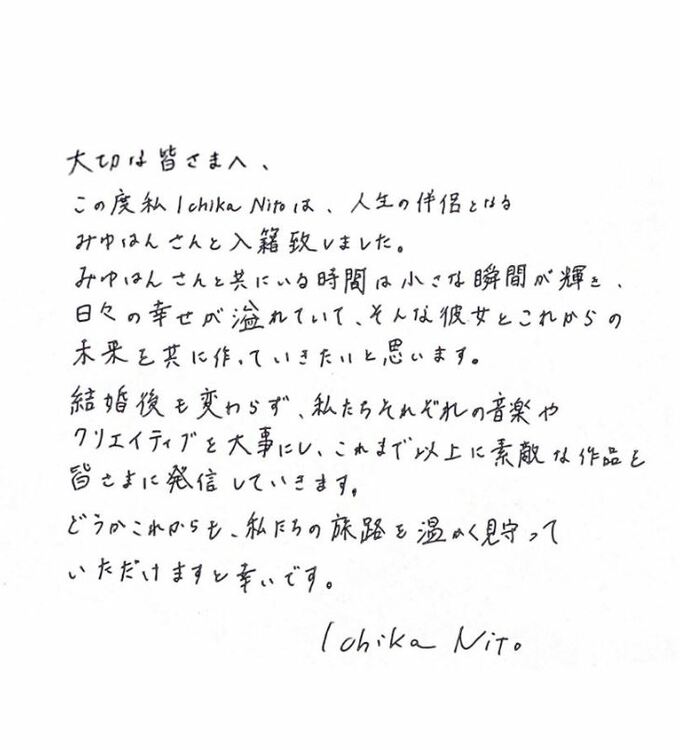 大切な皆さまへ、
この度私Ichika Nitoは、人生の伴侶となる
みゆはんさんと入籍致しました。
みゆはんさんと共にいる時間は小さな瞬間が輝き、
日々の幸せが溢れていて、そんな彼女とこれからの
未来を共に作っていきたいと思います。
結婚後も変わらず、私たちそれぞれの音楽や
クリエイティブを大事にし、これまで以上に素敵な作品を
皆さまに発信していきます。
どうかこれからも、私たちの旅路を温かく見守って
いただけますと幸いです。
Ichika Nito